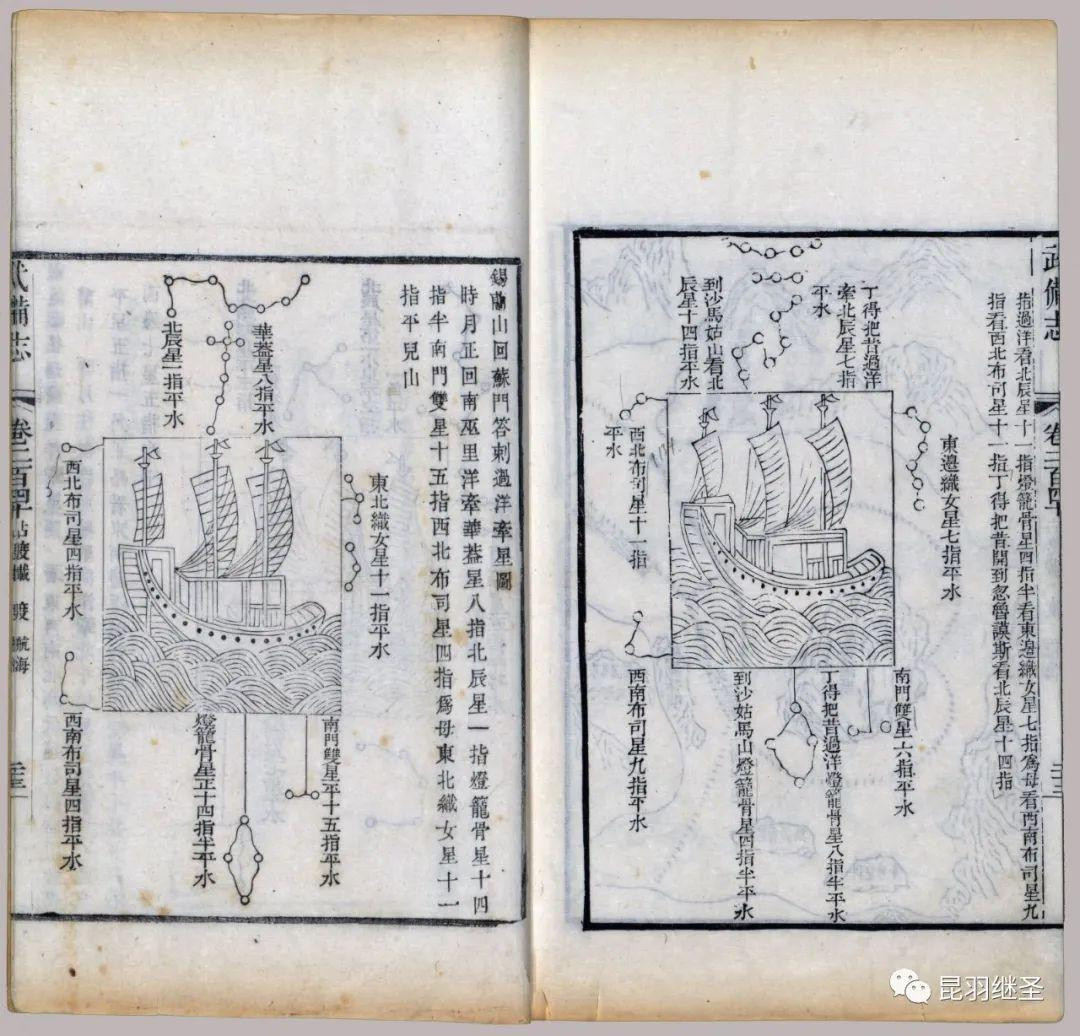 武備志
卷二百四十
指過洋看北辰星十一指燈籠骨星四指半看東邊織女星七指爲母看西南布司星九
指看西北布司星十一指丁得把昔開到忽魯謨斯看北辰星十四指
東邊織女星七指平水
丁得把昔過洋
牽北辰星七指
平水
到沙馬姑山看北
辰星十四指平水
西北布司星十一指
平水
南門雙星六指平水
丁得把昔過洋燈籠骨星八指半平水
到沙姑馬山燈籠骨星四指半平水
西南布司星九指平水
錫蘭山回蘇門答剌過洋牽星圖
時月正回南巫里洋牽華蓋星八指北辰星一指燈籠骨星十四
指半南門雙星十五指西北布司星四指爲母東北織女星十一
指平兒山
東北織女星十一指平水
華蓋星八指平水
北辰星一指平水
西北布司星四指平水
南門雙星平十五指平水
燈籠骨星正十四指半平水
西南布司星四指平水
武備志
卷二百四十
度 航海
昆羽继圣